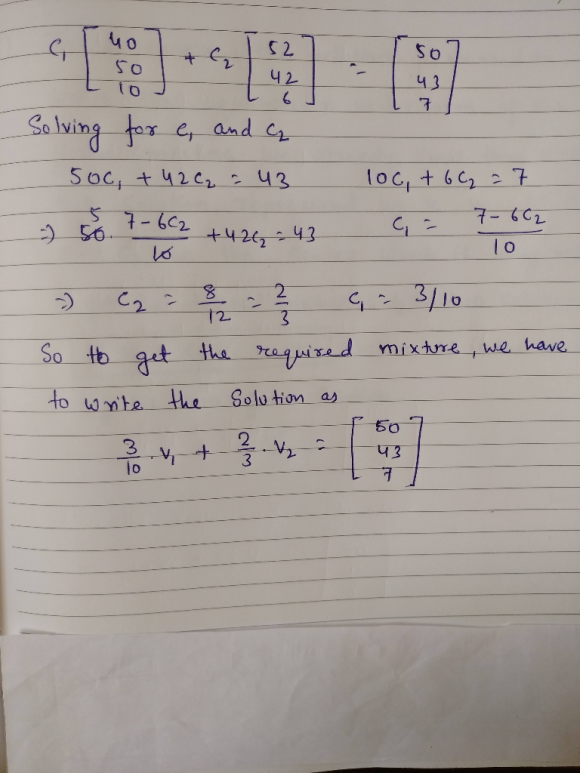 C₁ [40 50 10] + C₂ [52 42 6] = [50 43 7]
Solving for C₁ and C₂
50C₁ + 42C₂ = 43    10C₁ + 6C₂ = 7
⇒ 50. 5 7-6C₂/10 + 42C₂ = 43    C₁ = 7-6C₂/10
⇒ C₂ = 8/12 = 2/3    C₁ = 3/10
So to get the required mixture, we have
to write the solution as
3/10 . V₁ + 2/3 . V₂ = [50 43 7]